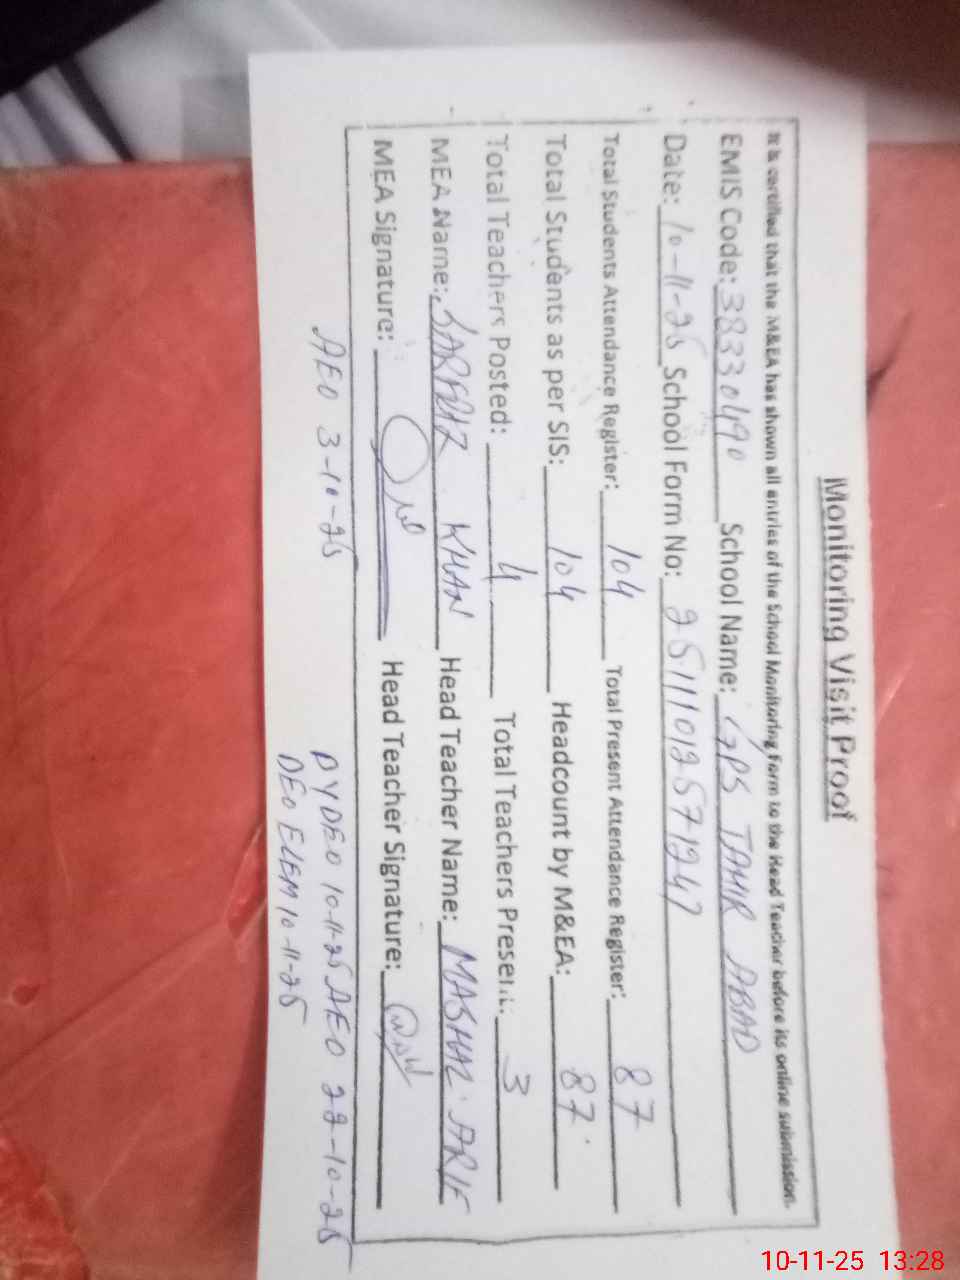 Monitoring Visit Proof
It is certified that the M&EA has shown all entries of the School Monitoring Form to the Head Teacher before its online submission.
EMIS Code: 38330490 School Name: GPS TAHIR ABAD
Date: 10-11-25 School Form No: 25111012571247
Total Students Attendance Register: 104 Total Present Attendance Register: 87
Total Students as per SIS: 104 Headcount by M&EA: 87
Total Teachers Posted: 4 Total Teachers Present: 3
MEA Name: SARFRAZ KHAN Head Teacher Name: MASHAL ARIF
MEA Signature: Head Teacher Signature:
AEO 3-10-25 DYDEO 10-11-25 AEO 22-10-25
DEO ELEM 10-11-25
10-11-25 13:28